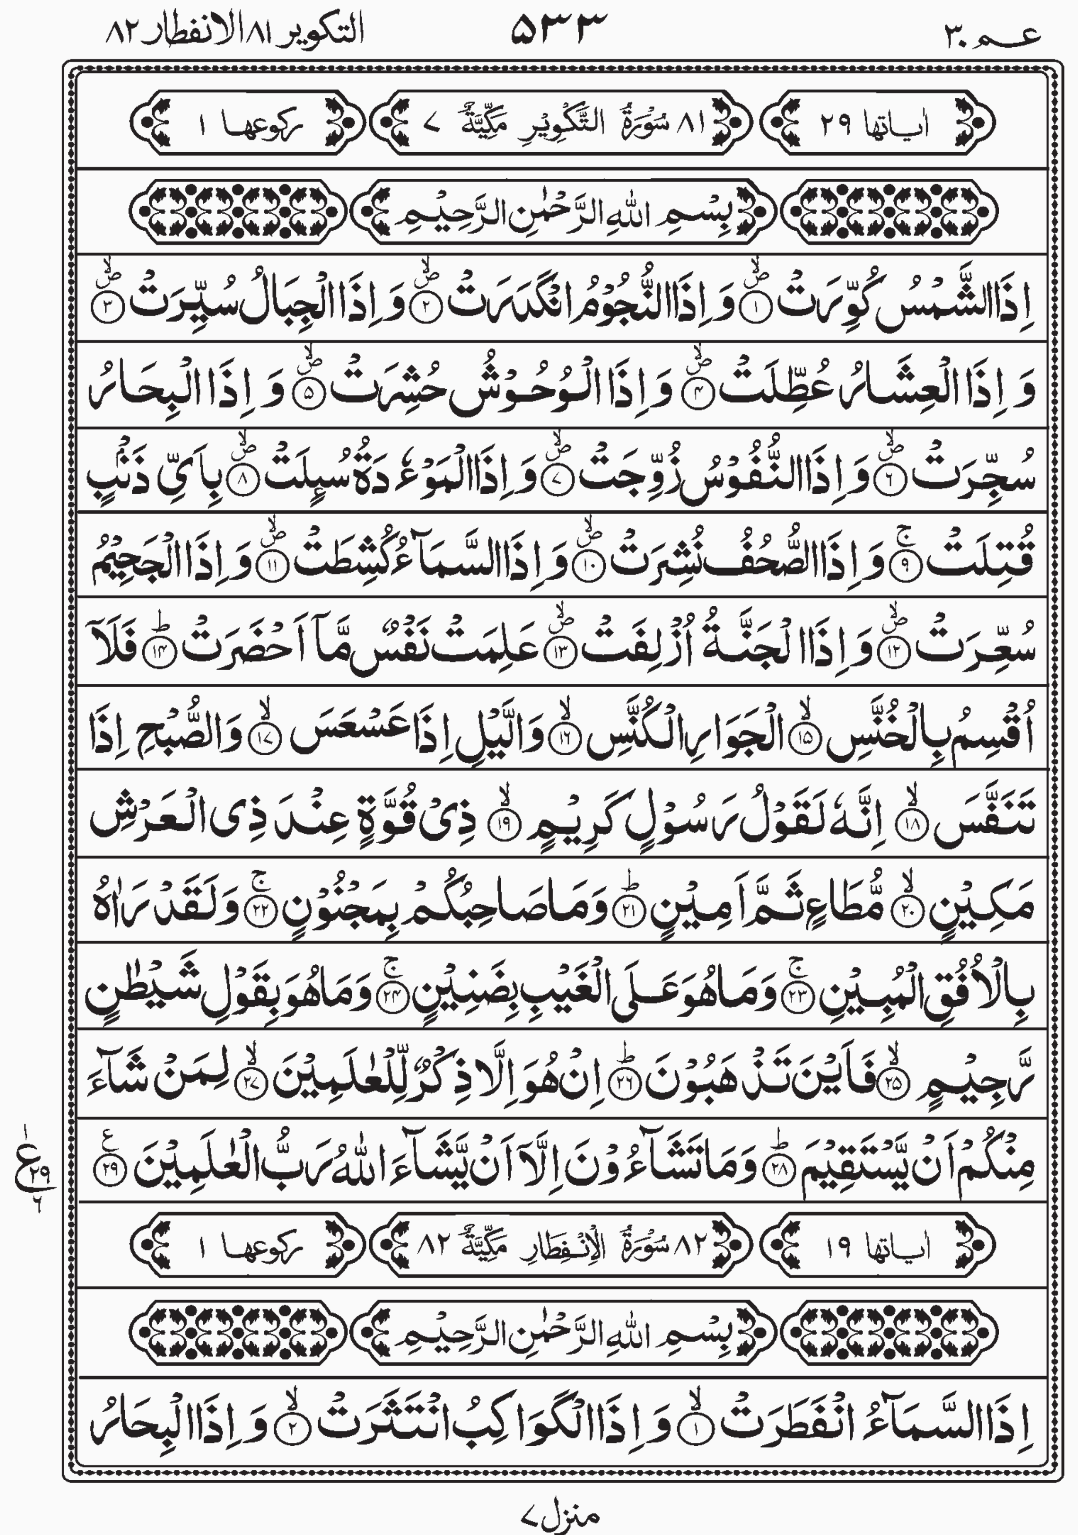 عـم ٣٠ ٥٣٣ التكوير ٨١ الانفطار ٨٢
اٰياتها ٢٩ ٨١ سُوْرَةُ التَّكْوِيْرِ مَكِّيَّةٌ ٧ ركوعها ١
بِسْمِ اللّٰهِ الرَّحْمٰنِ الرَّحِيْمِ
اِذَا الشَّمْسُ كُوِّرَتْ ۪ۙ﴿١﴾ وَ اِذَا النُّجُوْمُ انْكَدَرَتْ ۪ۙ﴿٢﴾ وَ اِذَا الْجِبَالُ سُيِّرَتْ ۪ۙ﴿٣﴾
وَ اِذَا الْعِشَارُ عُطِّلَتْ ۪ۙ﴿٤﴾ وَ اِذَا الْوُحُوْشُ حُشِرَتْ ۪ۙ﴿٥﴾ وَ اِذَا الْبِحَارُ
سُجِّرَتْ ۪ۙ﴿٦﴾ وَ اِذَا النُّفُوْسُ زُوِّجَتْ ۪ۙ﴿٧﴾ وَ اِذَا الْمَوْءٗدَةُ سُىِٕلَتْ ۪ۙ﴿٨﴾ بِاَيِّ ذَنْۢبٍ
قُتِلَتْ ۚ﴿٩﴾ وَ اِذَا الصُّحُفُ نُشِرَتْ ۪ۙ﴿١٠﴾ وَ اِذَا السَّمَآءُ كُشِطَتْ ۪ۙ﴿١١﴾ وَ اِذَا الْجَحِيْمُ
سُعِّرَتْ ۪ۙ﴿١٢﴾ وَ اِذَا الْجَنَّةُ اُزْلِفَتْ ۪ۙ﴿١٣﴾ عَلِمَتْ نَفْسٌ مَّاۤ اَحْضَرَتْ ؕ﴿١٤﴾ فَلَاۤ
اُقْسِمُ بِالْخُنَّسِ ۙ﴿١٥﴾ الْجَوَارِ الْكُنَّسِ ۙ﴿١٦﴾ وَ الَّيْلِ اِذَا عَسْعَسَ ۙ﴿١٧﴾ وَ الصُّبْحِ اِذَا
تَنَفَّسَ ۙ﴿١٨﴾ اِنَّهٗ لَقَوْلُ رَسُوْلٍ كَرِيْمٍ ۙ﴿١٩﴾ ذِيْ قُوَّةٍ عِنْدَ ذِى الْعَرْشِ
مَكِيْنٍ ۙ﴿٢٠﴾ مُّطَاعٍ ثَمَّ اَمِيْنٍ ؕ﴿٢١﴾ وَ مَا صَاحِبُكُمْ بِمَجْنُوْنٍ ۚ﴿٢٢﴾ وَ لَقَدْ رَاٰهُ
بِالْاُفُقِ الْمُبِيْنِ ۚ﴿٢٣﴾ وَ مَا هُوَ عَلَى الْغَيْبِ بِضَنِيْنٍ ۚ﴿٢٤﴾ وَ مَا هُوَ بِقَوْلِ شَيْطٰنٍ
رَّجِيْمٍ ۙ﴿٢٥﴾ فَاَيْنَ تَذْهَبُوْنَ ؕ﴿٢٦﴾ اِنْ هُوَ اِلَّا ذِكْرٌ لِّلْعٰلَمِيْنَ ۙ﴿٢٧﴾ لِمَنْ شَآءَ
مِنْكُمْ اَنْ يَّسْتَقِيْمَ ؕ﴿٢٨﴾ وَ مَا تَشَآءُوْنَ اِلَّاۤ اَنْ يَّشَآءَ اللّٰهُ رَبُّ الْعٰلَمِيْنَ ﴿٢٩﴾ع
ع ١ ٢٩ ٦
اٰياتها ١٩ ٨٢ سُوْرَةُ الْاِنْفِطَارِ مَكِّيَّةٌ ٨٢ ركوعها ١
بِسْمِ اللّٰهِ الرَّحْمٰنِ الرَّحِيْمِ
اِذَا السَّمَآءُ انْفَطَرَتْ ۙ﴿١﴾ وَ اِذَا الْكَوَاكِبُ انْتَثَرَتْ ۙ﴿٢﴾ وَ اِذَا الْبِحَارُ
منزل ٧